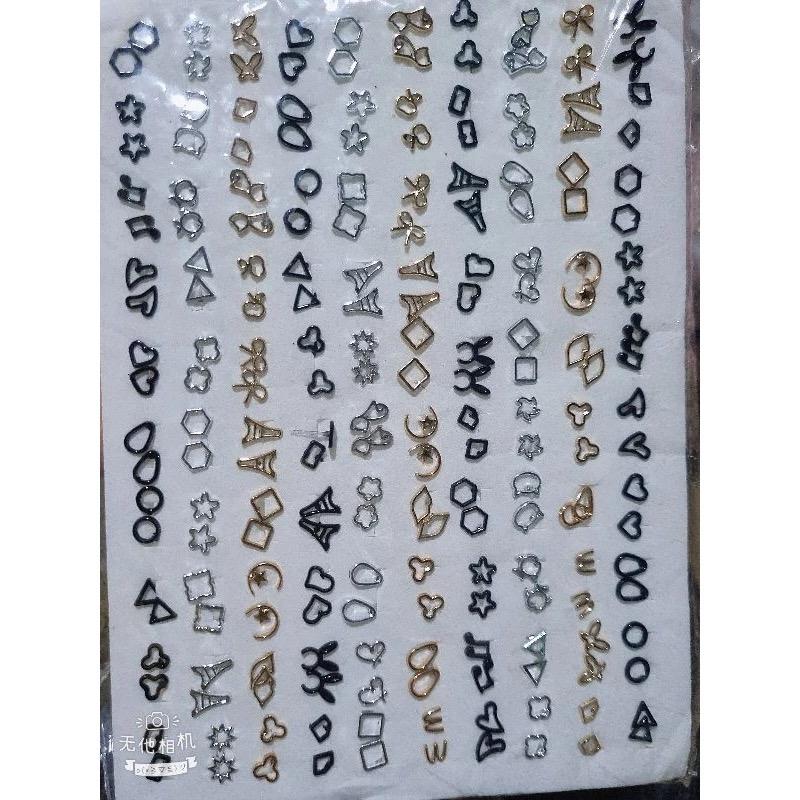 无他相机